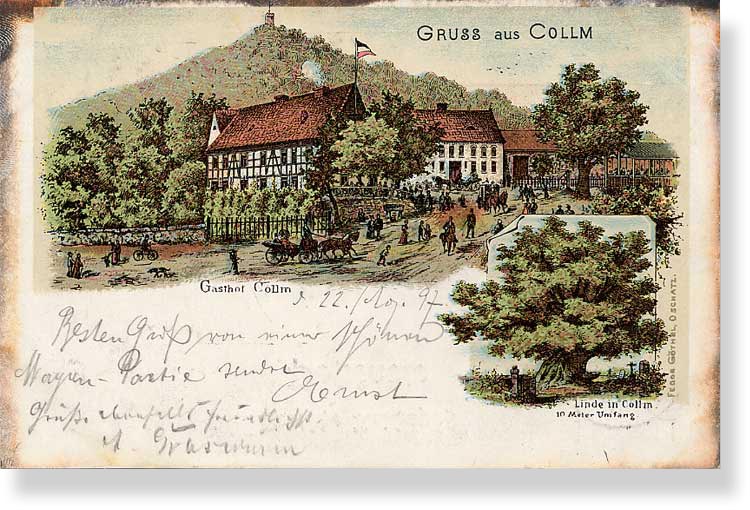 GRUSS AUS COLLM
Gasthof Collm
d. 22./Aug. 97
Besten Gruß von einer schönen
Wagen-Partie sendet
Ernst
Grüße ebenfalls freundlichst.
Linde in Collm.
10 Meter Umfang
FEDOR GÖTHEL, OSCHATZ.